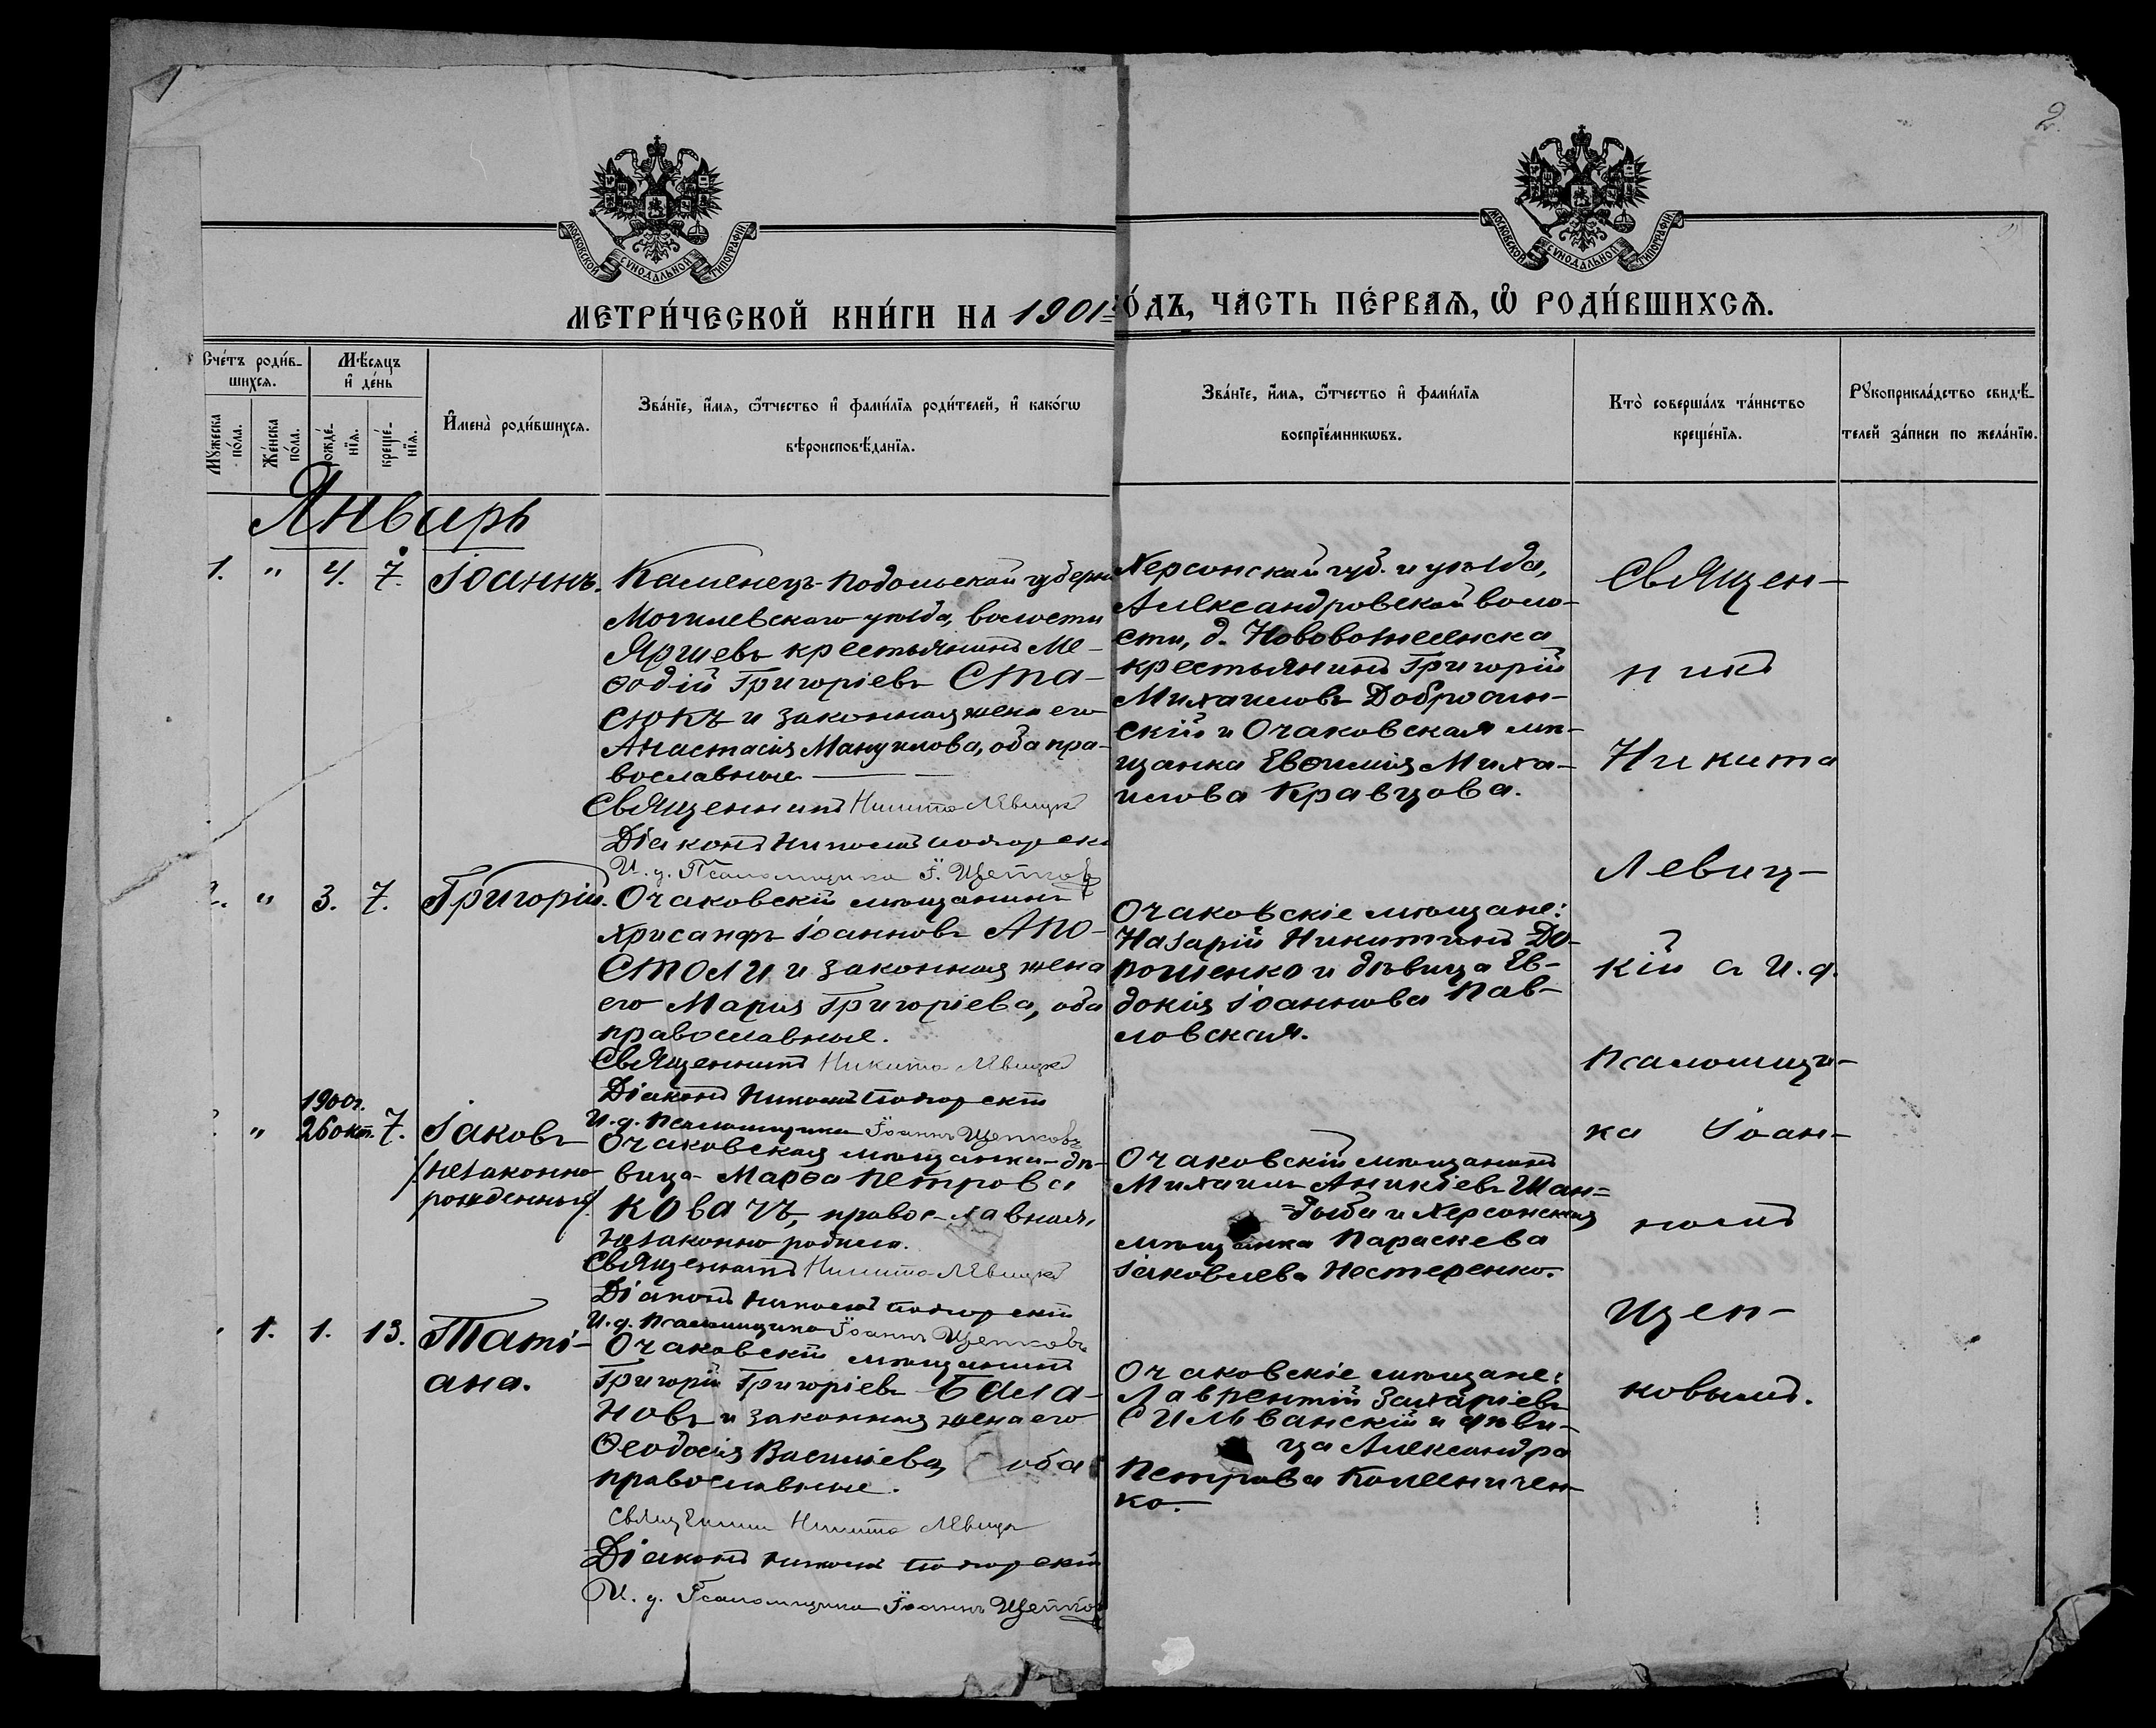 2.
МОСКОВСКОЙ СѴНОДАЛЬНОЙ ТИПОГРАФІИ
МОСКОВСКОЙ СѴНОДАЛЬНОЙ ТИПОГРАФІИ
МЕТРИ́ЧЕСКОЙ КНИ́ГИ НА 1901 ГО́ДЪ, ЧА́СТЬ ПЕ́РВАѦ, Ѡ҆ РОДИ́ВШИХСѦ.
Сче́тъ роди́в-
шихсѧ.
Мꙋ́жеска
по́ла.
Же́нска
по́ла.
Мѣ́сѧцъ
и҆ де́нь
рожде́-
нїѧ.
креще́-
нїѧ.
И҆мена̀ роди́вшихсѧ.
Зва́нїе, и҆́мѧ, ѻ҆́тчество и҆ фами́лїѧ роди́телей, и҆ како́гѡ
вѣроисповѣ́данїѧ.
Зва́нїе, и҆́мѧ, ѻ҆́тчество и҆ фами́лїѧ
воспрїе́мникѡвъ.
Кто̀ соверша́лъ та́инство
креще́нїѧ.
Рꙋкоприкла́дство свидѣ́-
телей за́писи по жела́нїю.
Январь
1. " 4. 7. Іоаннъ.
Каменецъ-Подольской губерн
Могилевскаго уѣзда, волости
Яришевъ крестьянинъ Ме-
ѳодій Григоріевъ Ста-
сюкъ и законная жена его
Анастасія Мануилова, оба пра-
вославные
Священникъ Никита Левицкій
Діаконъ Николай
И. д. Псаломщика І. Щепковъ
Херсонской губ. и уѣзда,
Александровской воло-
сти, д. Нововознесенска
крестьянинъ Григорій
Михаиловъ Добросин-
скій и Очаковская мѣ-
щанка Евѳимія Миха-
илова Кравцова.
Священ-
никъ
Никита
Левиц-
кій съ И. д.
псаломщи-
ка Іоан-
номъ
Щеп-
ковымъ.
" 3. 7. Григорій.
Очаковскій мѣщанинъ
Хрисанфъ Іоанновъ Апо-
столи и законная жена
его Марія Григоріева, оба
православные.
Священникъ Никита Левицкій
Діаконъ Николай
И. д. Псаломщика Іоаннъ Щепковъ
Очаковскіе мѣщане:
Назарій Никитинъ До-
рошенко и дѣвица Ев-
докія Іоаннова Пав-
ловская.
1900 г.
" 26 окт. 7. Іаковъ
/незаконно-
рожденный/
Очаковская мѣщанка-дѣ-
вица Марѳа Петрова
Ковачъ, православная,
незаконно родила.
Священникъ Никита Левицкій
Діаконъ Николай
И. д. Псаломщика Іоаннъ Щепковъ
Очаковскій мѣщанинъ
Михаилъ Аникіевъ Шан-
дыба и Херсонская
мѣщанка Параскева
Іаковлева Нестеренко.
1. 1. 13. Таті-
ана.
Очаковскій мѣщанинъ
Григорій Григоріевъ Бала-
новъ и законная жена его
Ѳеодосія Васильева, оба
православные.
Священникъ Никита Левицкій
Діаконъ Николай
И. д. Псаломщика Іоаннъ Щепковъ
Очаковскіе мѣщане:
Лаврентій Захаріевъ
Сильванскій и дѣви-
ца Александра
Петрова Колесничен-
ко.